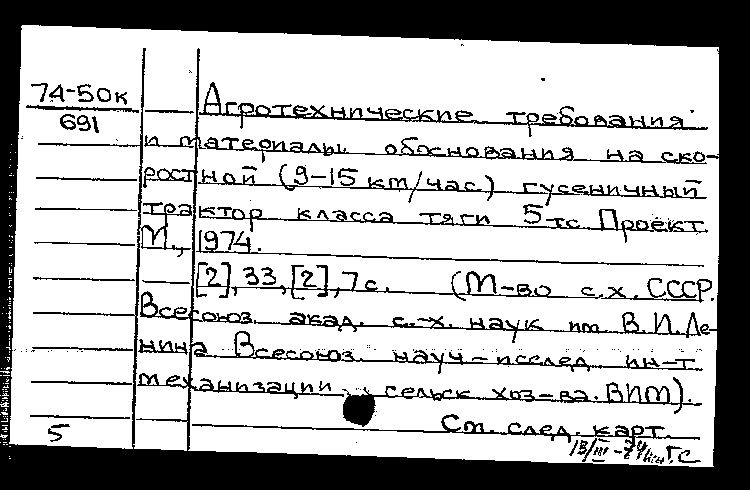 74-50к
691
Агротехнические требования
и материалы обоснования на ско-
ростной (9-15 км/час) гусеничный
трактор класса тяги 5тс Проект.
М., 1974.
[2], 33, [2], 7с. (М-во с.х. СССР.
Всесоюз. акад. с.-х. наук им В.И.Ле-
нина Всесоюз. науч-исслед ин-т
механизации сельск хоз-ва.ВИМ).
См. след. карт.
5
13/III-74 ГС